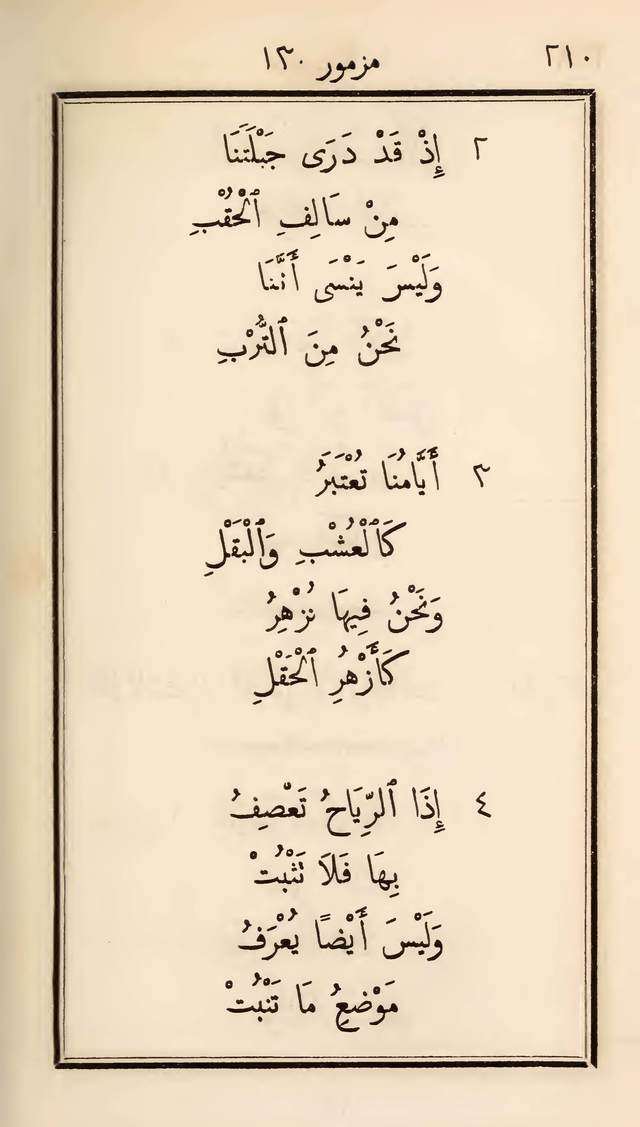 ٢١٠ مزمور ١٣٠
٢ إِذْ قَدْ دَرَى جَبْلَتَنَا
مِنْ سَالِفِ ٱلْحُقْبِ
وَلَيْسَ يَنْسَى أَنَّنَا
نَحْنُ مِنَ ٱلتُّرْبِ
٣ أَيَّامُنَا تُعْتَبَرُ
كَٱلْعُشْبِ وَٱلْبَقْلِ
وَنَحْنُ فِيهَا نُزْهِرُ
كَأَزْهُرِ ٱلْحَقْلِ
٤ إِذَا ٱلرِّيَاحُ تَعْصِفُ
بِهَا فَلَا تَثْبُتْ
وَلَيْسَ أَيْضًا يُعْرَفُ
مَوْضِعُ مَا تَنْبُتْ